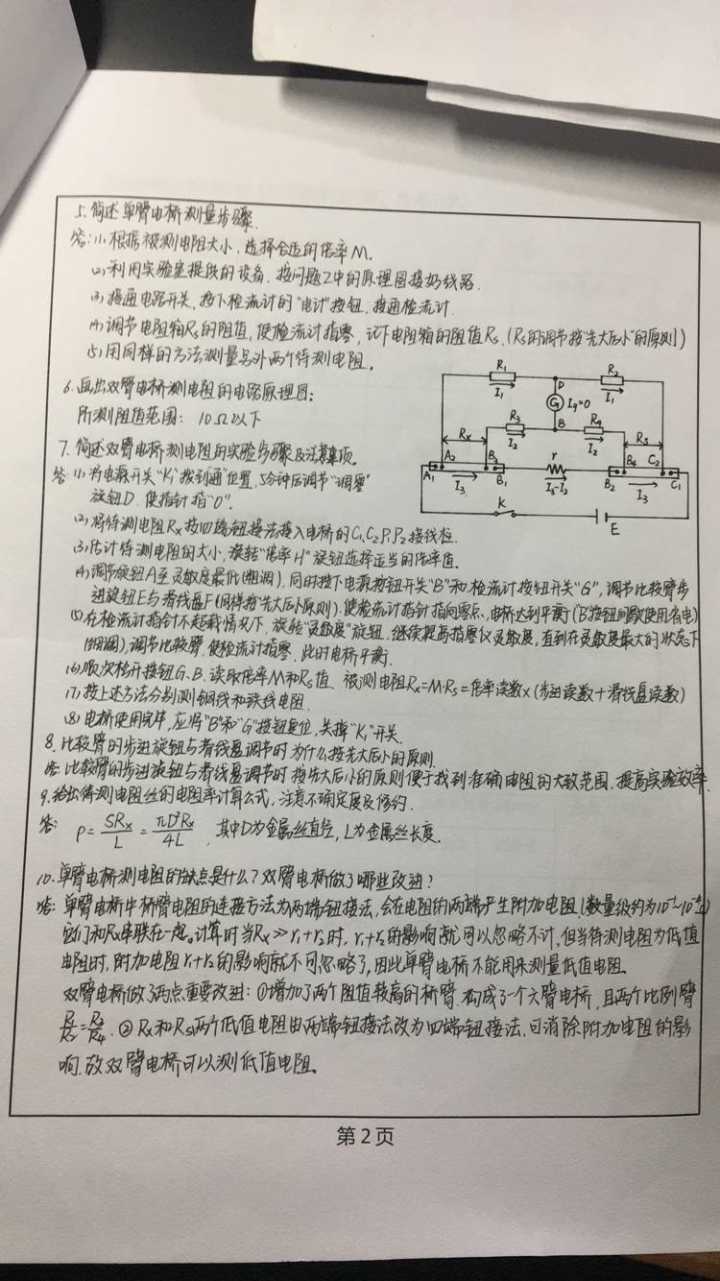 5. 简述单臂电桥测量步骤.
答: (1) 根据被测电阻大小, 选择合适的倍率M.
(2) 利用实验室提供的设备, 按问题2中的原理图接好线路.
(3) 接通电路开关, 按下检流计的"电计"按钮, 接通检流计.
(4) 调节电阻箱Rs的阻值, 使检流计指零, 记下电阻箱的阻值Rs. (Rs的调节按"先大后小"的原则)
(5) 用同样的方法测量另外两个待测电阻.
6. 画出双臂电桥测电阻的电路原理图:
所测阻值范围: 10Ω以下
R1 I1 D R2 I1
G Ig=0
R3 I2 B R4 I2
Rx Rs
A1 A2 B3 B1 r B2 B4 C2 C1
I3 I3-I2 I3
K E
7. 简述双臂电桥测电阻的实验步骤及注意事项.
答: (1) 将电源开关"K1"拨到"通"位置, 5分钟后调节"调零"
旋钮D, 使指针指"0".
(2) 将待测电阻Rx按四端钮接法接入电桥的C1、C2、P1、P2接线柱.
(3) 估计待测电阻的大小, 旋转"倍率H"旋钮选择适当的倍率值.
(4) 调节旋钮A至灵敏度最低(粗调), 同时按下电源按钮开关"B"和检流计按钮开关"G", 调节比较臂步
进旋钮E与滑线盘F(同样按"先大后小"原则), 使检流计指针指向零点, 电桥达到平衡(B按钮间歇使用省电)
(5) 在检流计指针不超载情况下, 旋转"灵敏度"旋钮, 继续提高指零仪灵敏度, 直到在灵敏度最大的状态下
(细调), 调节比较臂, 使检流计指零, 此时电桥平衡.
(6) 顺次松开按钮G、B, 读取倍率M和Rs值, 被测电阻Rx=M·Rs=倍率读数×(步进读数+滑线盘读数)
(7) 按上述方法分别测铜线和铁线电阻.
(8) 电桥使用完毕, 应将"B"和"G"按钮复位, 关掉"K1"开关.
8. 比较臂的步进旋钮与滑线盘调节时为什么按先大后小的原则.
答: 比较臂的步进旋钮与滑线盘调节时按先大后小的原则便于找到准确电阻的大致范围, 提高实验效率.
9. 给出待测电阻丝的电阻率计算公式, 注意不确定度及修约.
答: ρ = SRx/L = πD²Rx/4L, 其中D为金属丝直径, L为金属丝长度.
10. 单臂电桥测电阻的缺点是什么? 双臂电桥做了哪些改进?
答: 单臂电桥中桥臂电阻的连接方法为两端钮接法, 会在电阻的两端产生附加电阻(数量级约为
它们和Rx串联在一起. 计算时当Rx≫r1+r2时, r1+r2的影响就可以忽略不计, 但当待测电阻为低值
电阻时, 附加电阻r1+r2的影响就不可忽略了, 因此单臂电桥不能用来测量低值电阻.
双臂电桥做了两点重要改进: ①增加了两个阻值较高的桥臂, 构成了一个六臂电桥, 且两个比例臂
②Rx和Rs两个低值电阻由两端钮接法改为四端钮接法, 可消除附加电阻的影
响. 故双臂电桥可以测低值电阻.
第2页